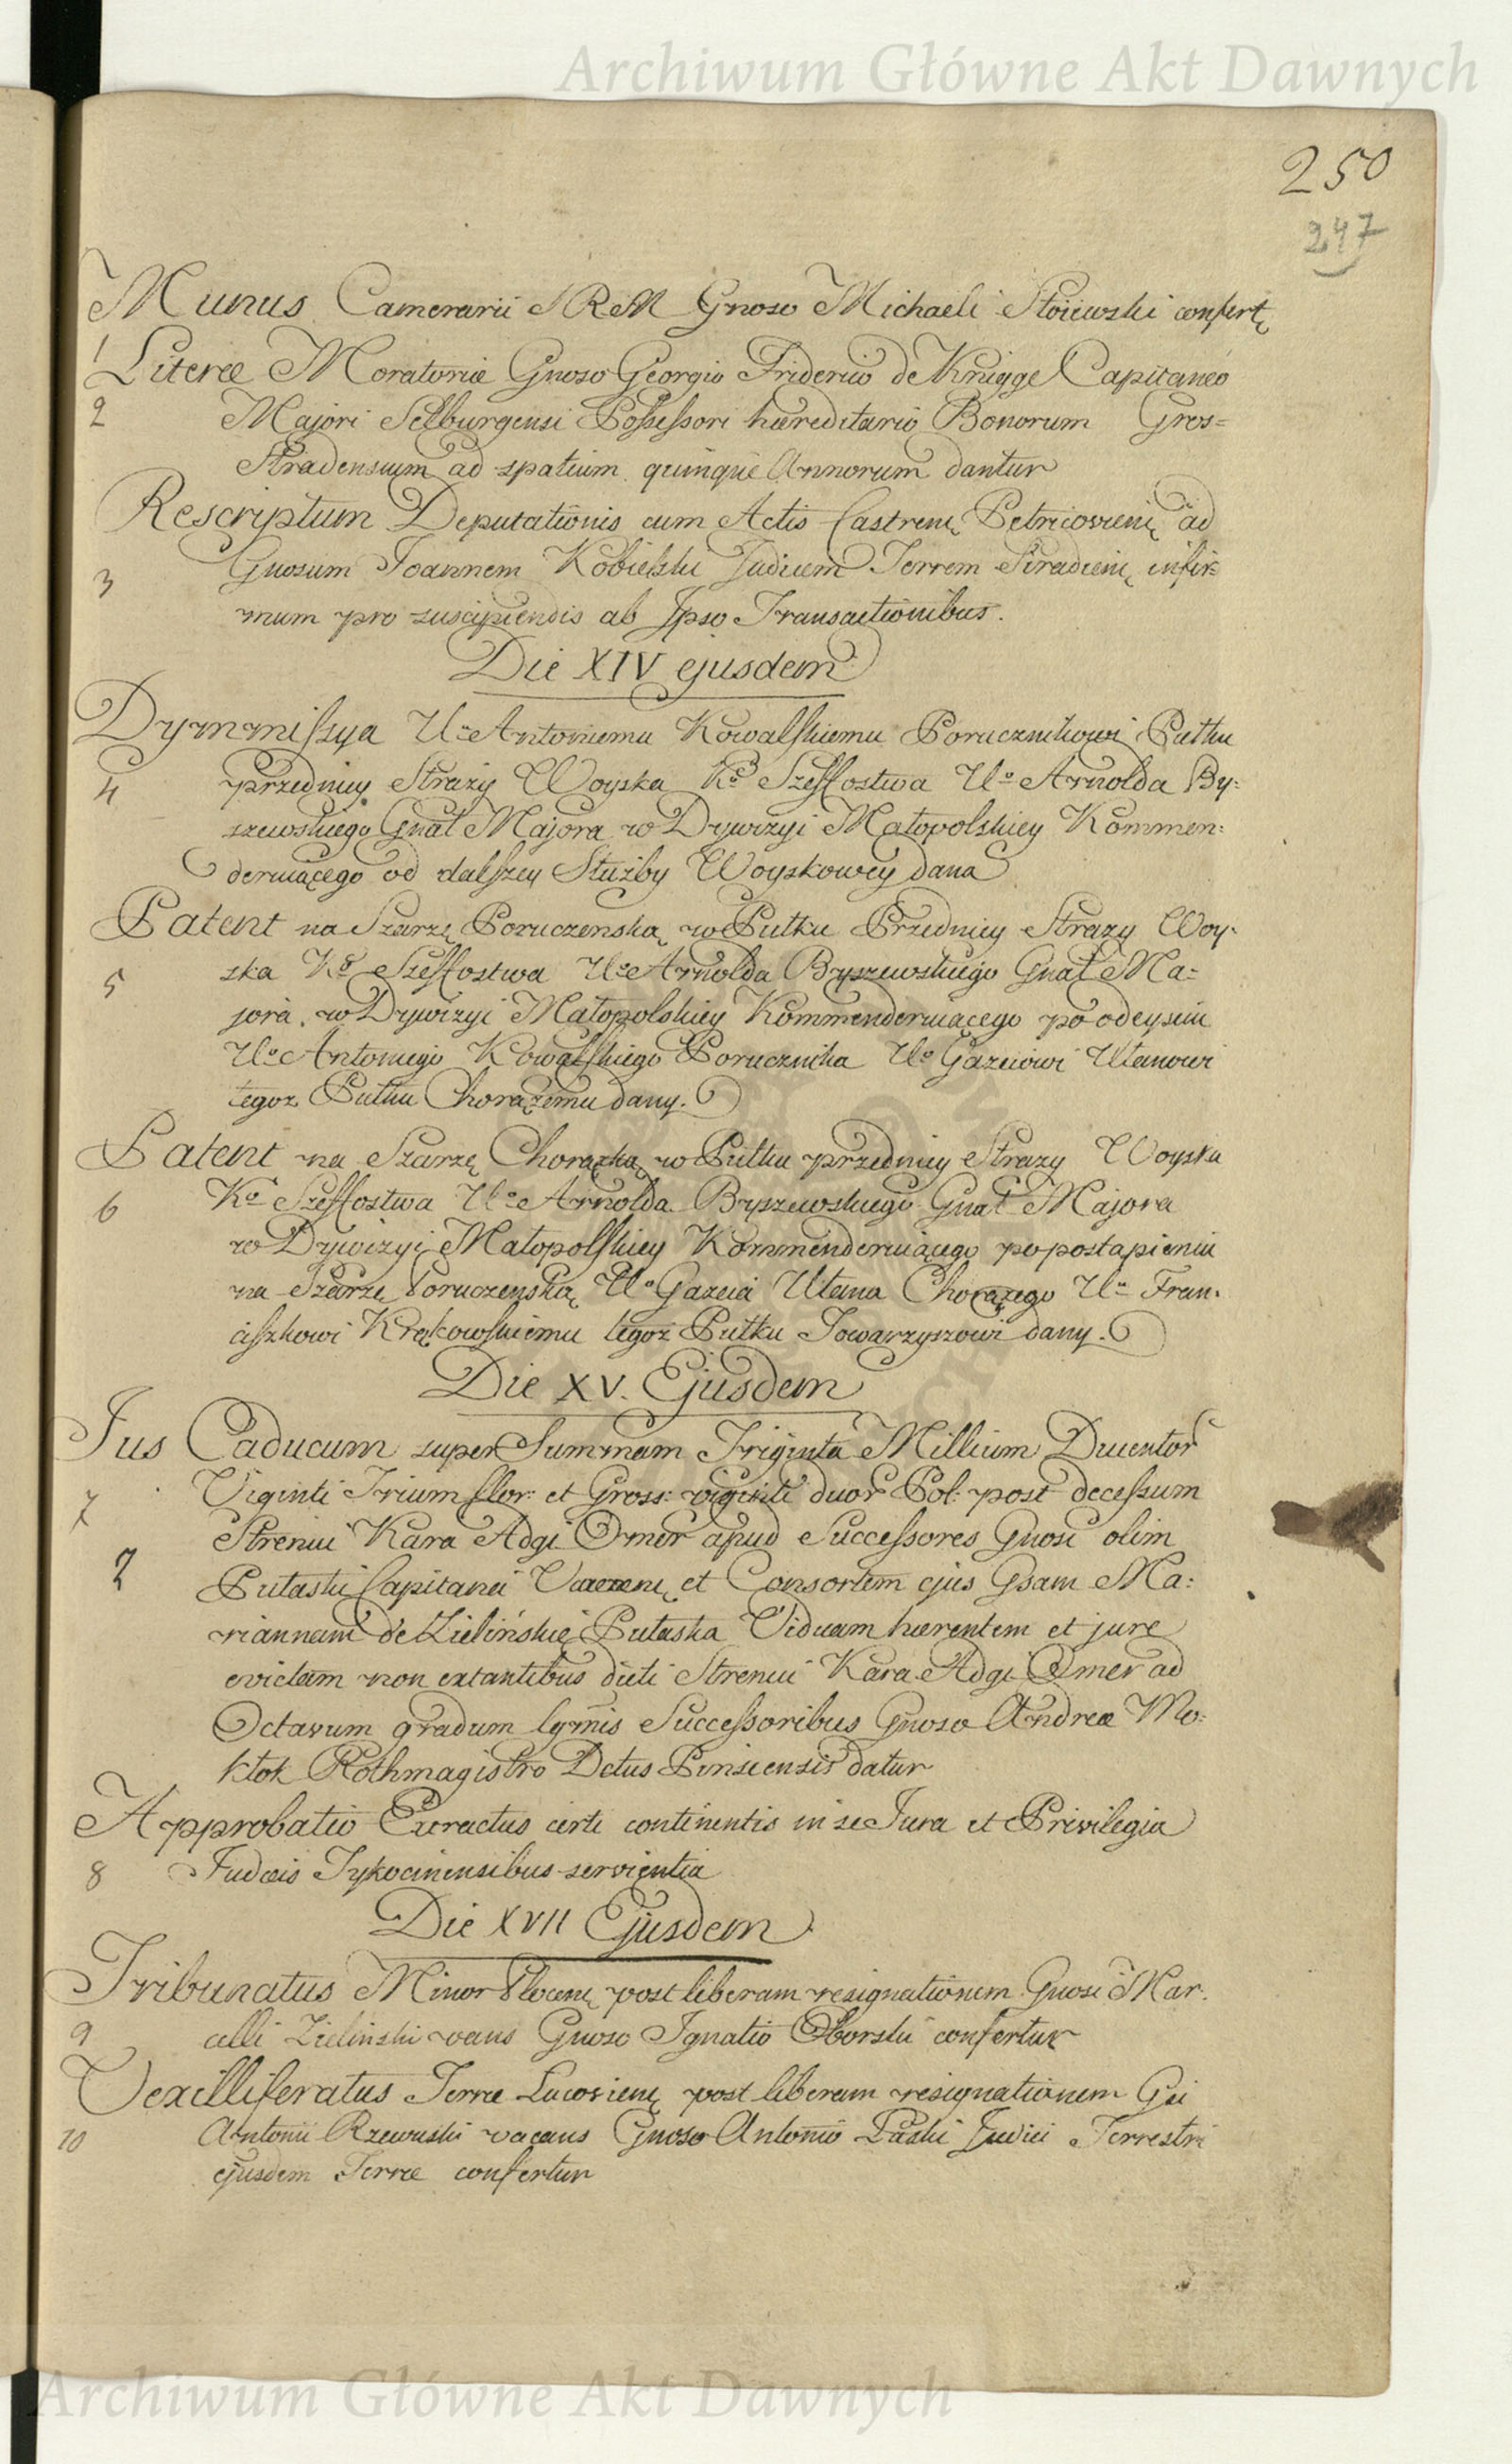 Archiwum Główne Akt Dawnych
250
247
Munus Camerarii S R M Gnoso Michaeli confert
1
Literæ Moratoriæ Gnoso Georgio Friderico de Knigge Capitaneo
2 Majori Selburgensi Possessori hæreditario Bonorum Gros=
Stradensium ad spatium quinque Annorum dantur
Rescriptum Deputationis cum Actis Castren̄ Petricovien̄ ad
3 Gnosum Joannem Kobielski Judicem Terrem Siradien̄ infir=
mum pro suscipiendis ab Ipso Transactionibus.
Die XIV ejusdem
Dymmissya Uo Antoniemu Kowalskiemu Porucznikowi Pułku
4 przedniey Straży Woyska Ko Szeffostwa Uo Arnolda By=
szewskiego Gnał Majora w Dywizyi Małopolskiey Kommen=
deruiącego od dalszey Służby Woyskowey dana
Patent na Szarżę Poruczenską w Pułku Przedniey Straży Woy=
5 ska Ko Szeffostwa Uo Arnolda Byszewskiego Gnał Ma=
jora w Dywizyi Małopolskiey Kommenderuiącego po odeysciu
Uo Antoniego Kowalskiego Porucznika Uo Gazeiowi Ułanowi
tegoż Pułku Chorążemu dany.
Patent na Szarżę Chorążką w Pułku przedniey Straży Woyska
6 Ko Szeffostwa Uo Arnolda Byszewskiego Gnał Majora
w Dywizyi Małopolskiey Kommenderuiącego po postąpieniu
na Szarżę Poruczenską Uo Gazeia Ułana Chorążego Uo Fran=
ciszkowi Krękowskiemu tegoż Pułku Towarzyszowi dany.
Die XV. Ejusdem
Jus Caducum super Summam Triginta Millium Ducentor
7 Viginti Trium flor: et Gross: viginti duor Pol: post decessum
Strenui Kara Adgi Omer apud Successores Gnosi olim
7 Pułaski Capitanei et Consortem ejus Gsam Ma=
riannam de Zielińskie Pułaska Viduam hærentem et jure
evictam non extantibus dicti Strenui Kara Adgi Omer ad
Octavum gradum lgmis Successoribus Gnoso Andreæ Mo=
ktok Rothmagistro Dctus Pinscensis datur
Approbatio Exractus certi continentis in se Jura et Privilegia
8 Judæis Tykocinensibus servientia
Die XVII Ejusdem
Tribunatus Minor Plocen̄ post liberam resignationem Gnosi Mar=
9 celli Zielinski vacns Gnoso Ignatio Oborski confertur
Vexilliferatus Terræ Lucovien̄ post liberam resignationem Gsi
10 Antonii Rzewuski vacans Gnoso Antonio Łaski Judici Terrestri
ejusdem Terræ confertur
Archiwum Główne Akt Dawnych